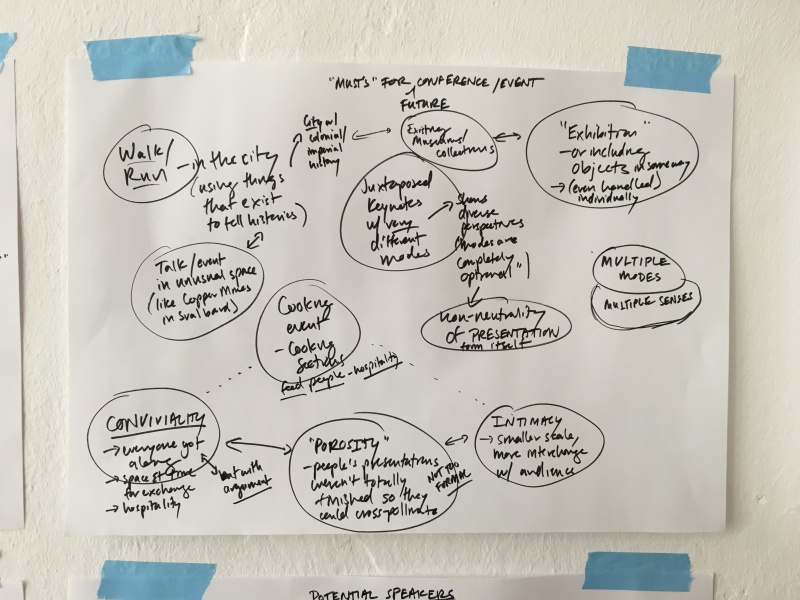 "MUST'S" FOR CONFERENCE/EVENT
FUTURE
Walk/
Run
- in the city
(using things
that exist
to tell histories)
City w/
colonial/
imperial
history
Existing
Museums/
collections
"Exhibition"
- or including
Objects in some way
→ (even handled)
individually
Juxtaposed
Keynotes
w/ very
different
modes
→ shows
diverse
perspectives
(modes are
completely
optional")
non-neutrality
OF PRESENTATION
form itself
MULTIPLE
MODES
MULTIPLE SENSES
Talk/event
in unusual space
(like Copper Mines
in Svalbard)
Cooking
event
- Cooking
Sections
feed people - hospitality
CONVIVIALITY
→ everyone got
along
→ space & time
for exchange
→ hospitality
but with
argument
"POROSITY"
- people's presentations
weren't totally
finished so they
could cross-pollinate
NOT TOO
FORMAL
INTIMACY
→ smaller scale,
more interchange
w/ audience
POTENTIAL SPEAKERS